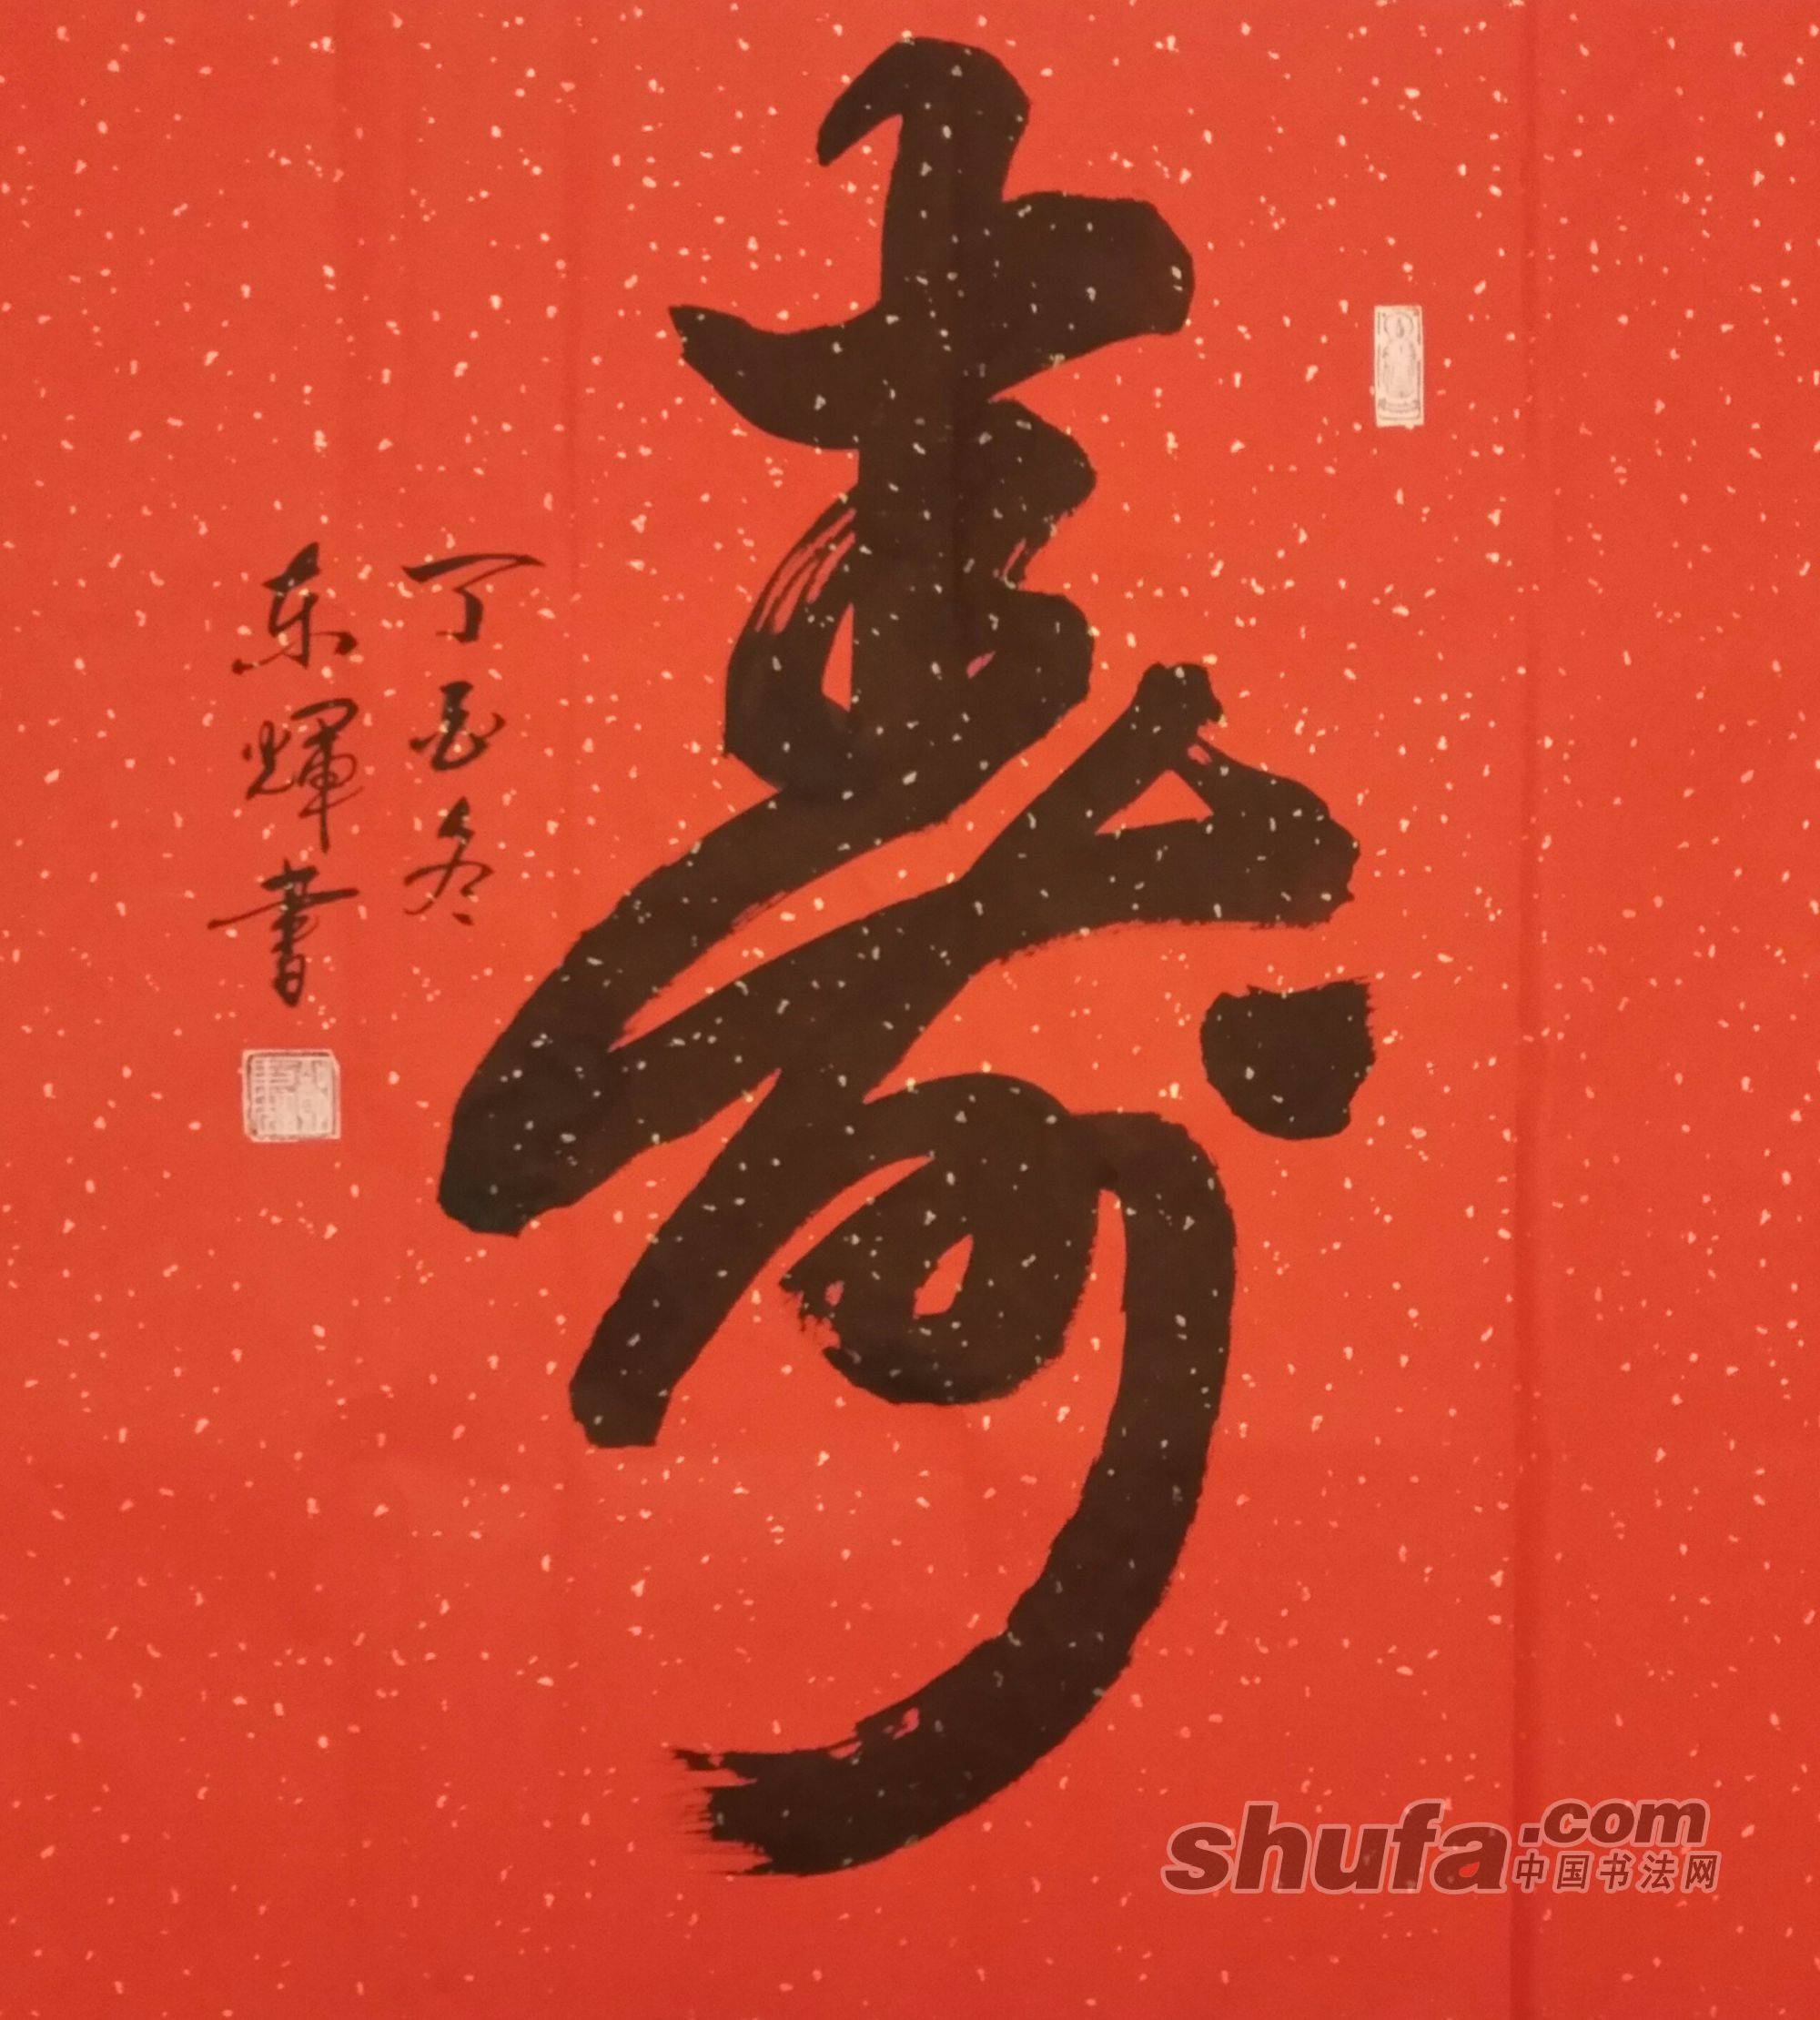 寿
丁酉冬
东辉书
shufa.com
中国书法网